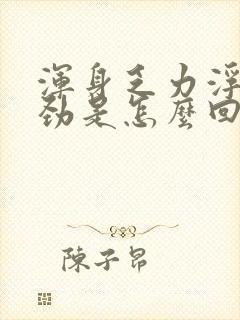 渾身乏力浮
勁是怎麼回
陳子昂